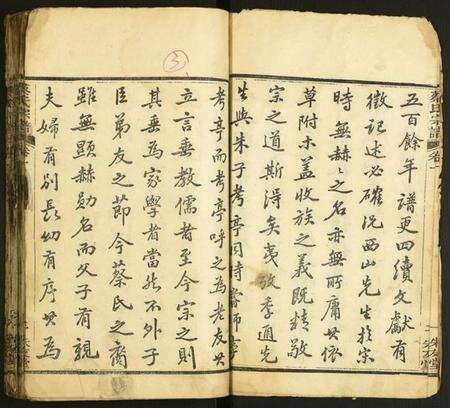 五百餘年譜更四續文獻有
徵記述必確況西山先生於宋
時無赫之名亦無所庸其依
草附木蓋收族之義既精敬
宗之道斯得矣夷攷季通先
生與朱子考亭同時嘗師事
考亭而考亭呼之為老友其
立言垂教儒者至今宗之則
其垂為家學者當然不外子
臣弟友之節今蔡氏之裔
雖無顯赫勛名而父子有親
夫婦有別長幼有序其為
蔡氏宗譜 卷
③